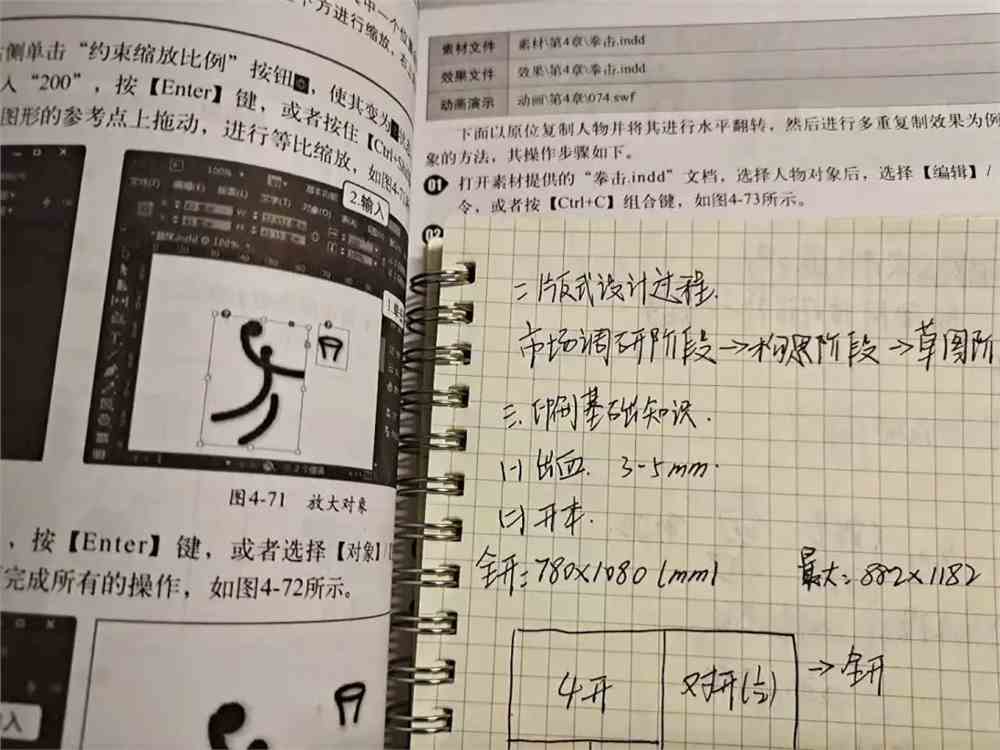 中一个位
方进行缩放，
侧单击“约束缩放比例”按钮，使其变为
入“200”，按【Enter】键，或者按住【Ctrl+Sh
图形的参考点上拖动，进行等比缩放，如图4-7
2.输入
100%
图4-71 放大对象
，按【Enter】键，或者选择【对象】
完成所有的操作，如图4-72所示。
素材文件 素材\第4章\拳击.indd
效果文件 效果\第4章\拳击.indd
动画演示 动画\第4章\074.swf
下面以原位复制人物并将其进行水平翻转，然后进行多重复制效果为例
象的方法，其操作步骤如下。
01 打开素材提供的“拳击.indd”文档，选择人物对象后，选择【编辑】/
令，或者按【Ctrl+C】组合键，如图4-73所示。
02
二、版式设计过程.
市场调研阶段→构思阶段→草图阶
三.印刷基础知识.
(一)出血. 3-5mm.
(二)开本.
全开：780×1080(mm) 最大：882×1182
4开 对开(1/2) →全开